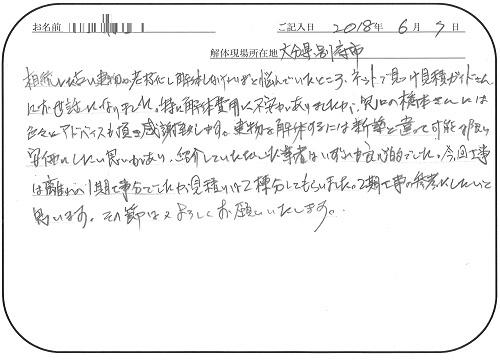 お名前 ご記入日 2018年 6月 7日
解体現場所在地 大分県別府市
相続した古い建物の老朽化し解体しなければと悩んでいたところ、ネットで見つけ見積ガイドさん
にお世話になりました。特に解体費用に不安がありましたが、窓口の橋本さんには
色々とアドバイスも頂き感謝致します。建物を解体するには新築と違って可能な限り
安価にしたい思いがあり、紹介していただいた業者はいずれも良心的でした。今回工事
は離れの1期工事分でしたが見積りは2棟分してもらいました。2期工事の参考にしたいと
思います。その節は又よろしくお願いいたします。